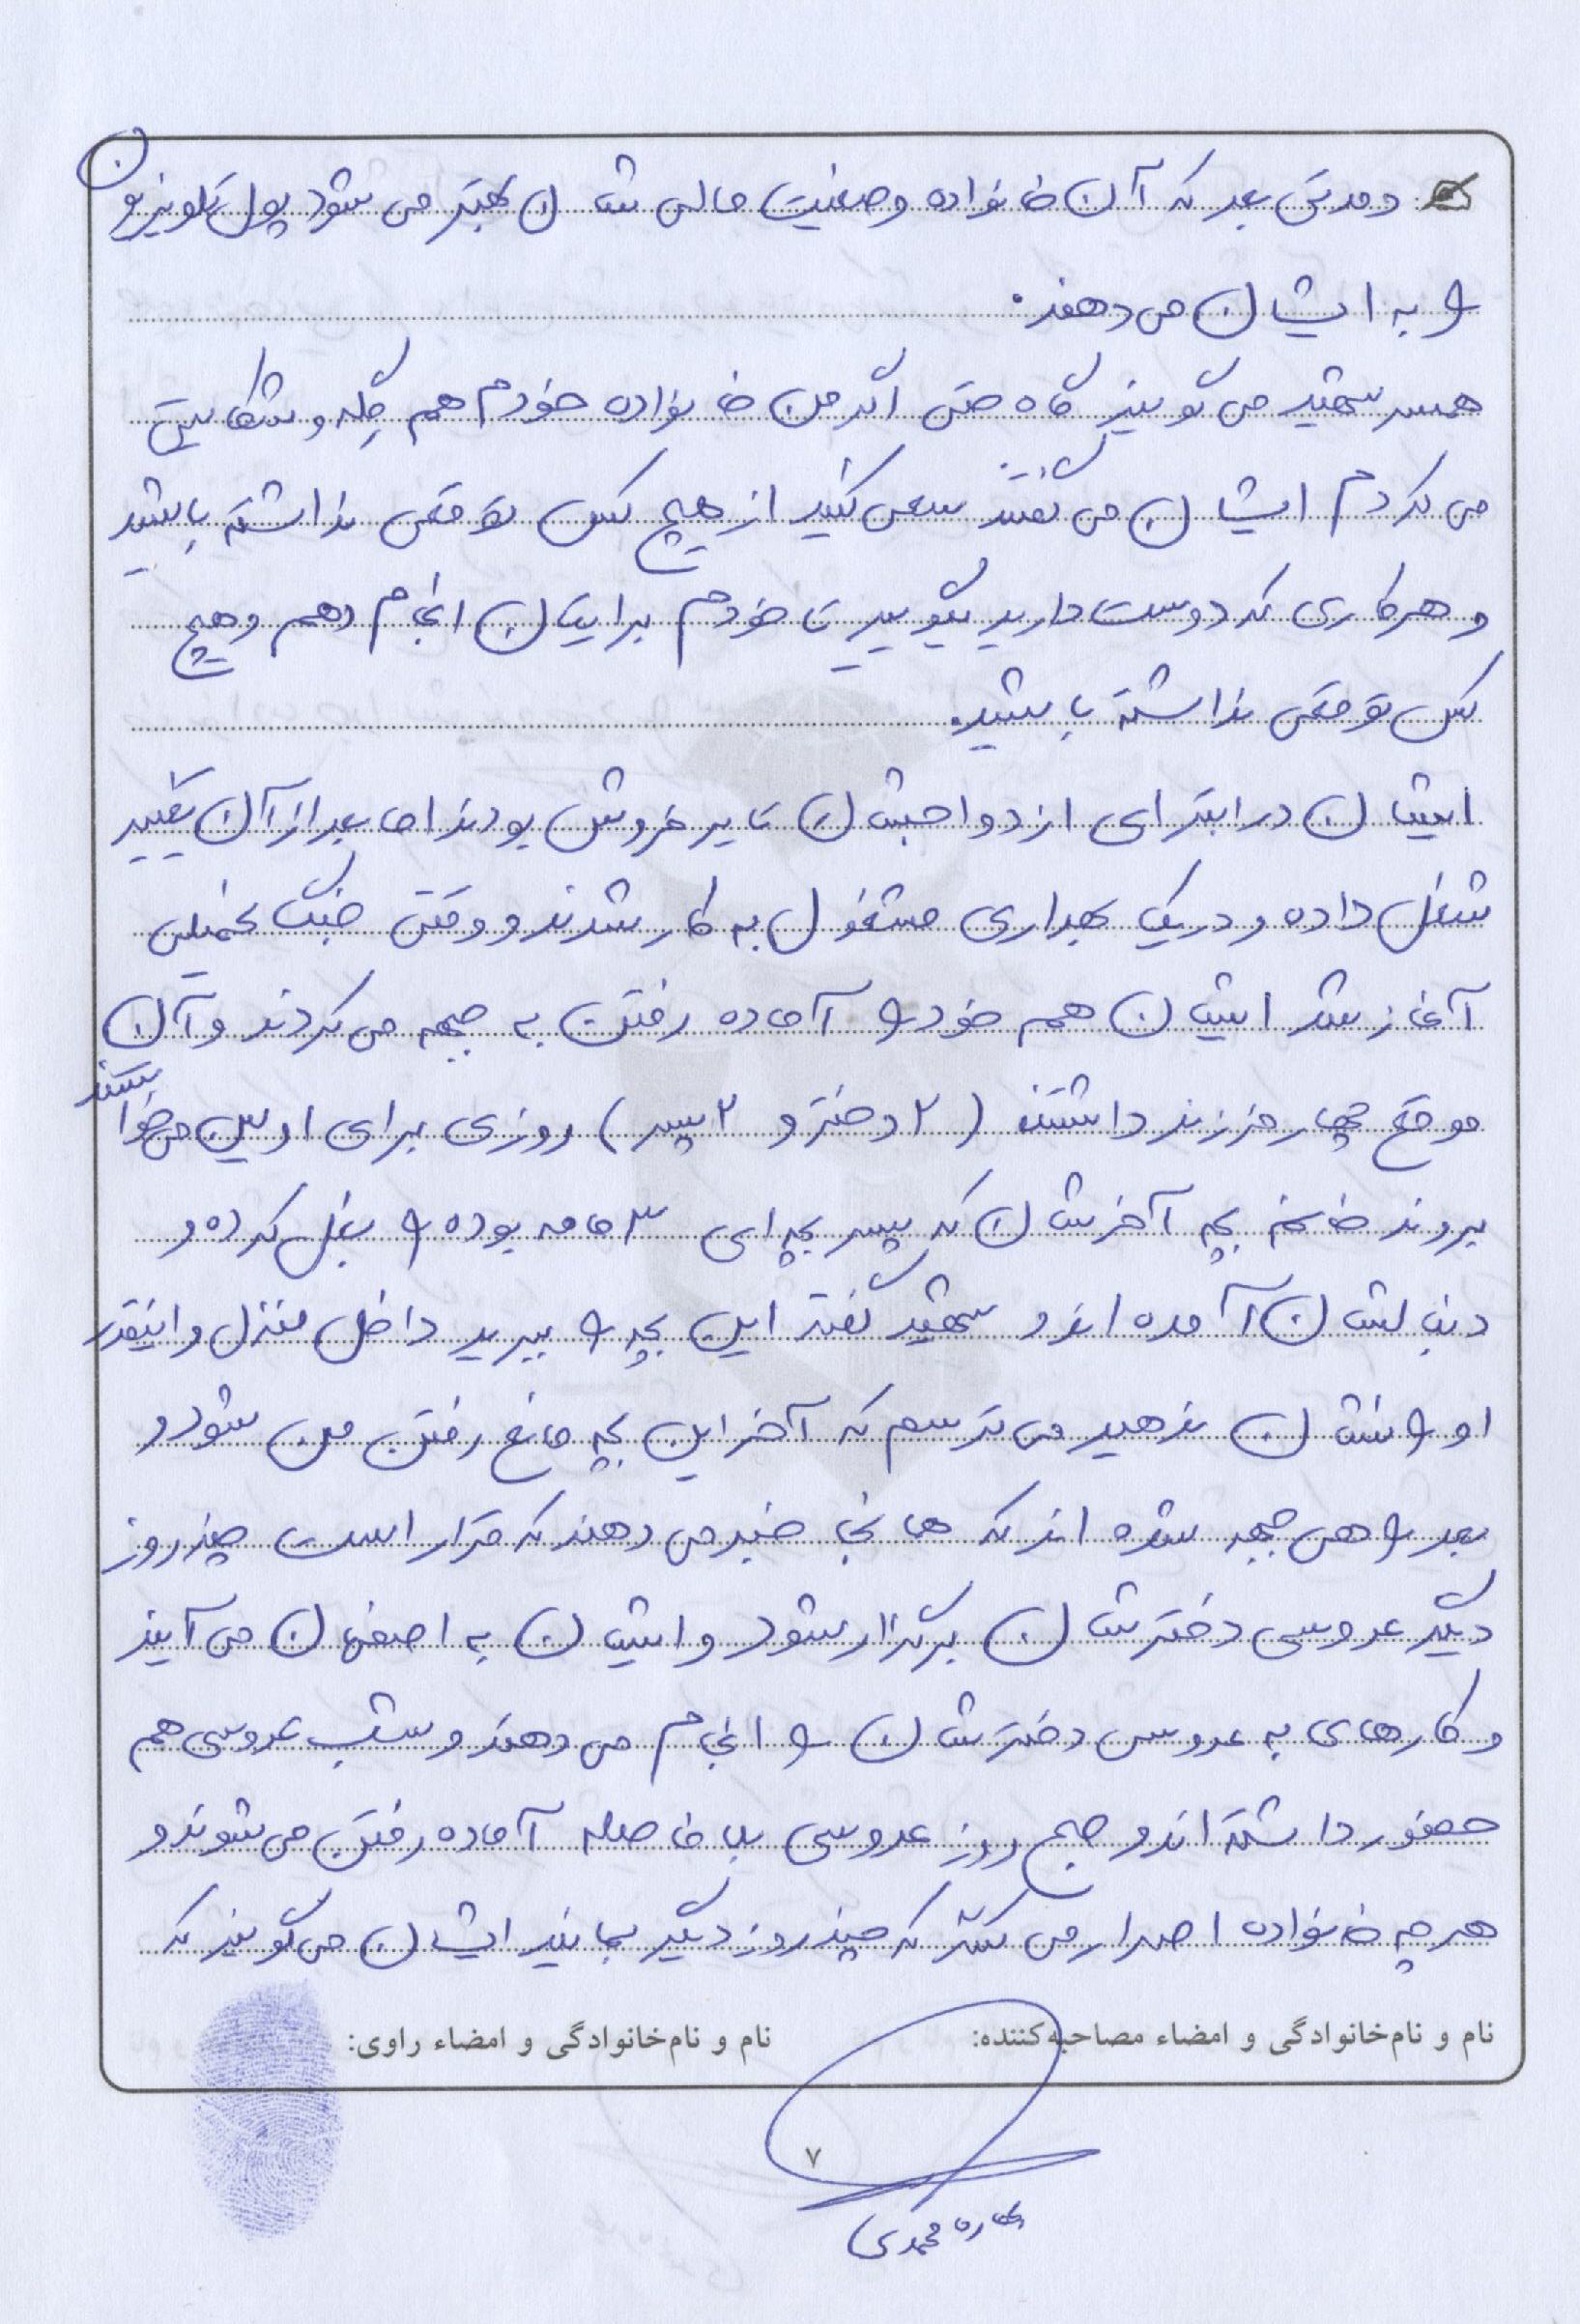 و مدتی بعد که آن خانواده وضعیت مالی شان بهتر می شود پول تلویزیون
را به ایشان می دهند.
همسر شهید می گویند گاه حتی اگر من خانواده خودم هم گله و شکایتی
می کردم ایشان می گفتند سعی کنید از هیچ کس توقعی نداشته باشید
و هر کاری که دوست دارید بگویید تا خودم برایتان انجام دهم و هیچ
کس توقعی نداشته باشید.
ایشان در ابتدای ازدواجشان تایر فروش بودند اما بعد از آن تغییر
شغل داده و در یک بهداری مشغول به کار شدند و وقتی جنگ تحمیلی
آغاز شد ایشان هم خود را آماده رفتن به جبهه می کردند و آن
موقع چهار فرزند داشتند (۲ دختر و ۲ پسر) روزی برای اولین می خواستند
بروند خانم بچه آخرشان که پسر بچه ای ۳ ماهه بوده را بغل کرده و
دنبالشان آمده اند و شهید گفتند این بچه را ببرید داخل منزل و اینقدر
او را نشان ندهید می ترسم که آخر این بچه مانع رفتن من شود و
بعد راهی جبهه شده اند که همانجا خبر می دهند که قرار است چند روز
دیگر عروسی دخترشان برگزار شود و ایشان به اصفهان می آیند
و کارهای به عروسی دخترشان را انجام می دهند و شب عروسی هم
حضور داشته اند و صبح روز عروسی بلافاصله آماده رفتن می شوند و
هر چه خانواده اصرار می کنند که چند روز دیگر بمانید ایشان می گویند که
نام و نام‌خانوادگی و امضاء مصاحبه‌کننده: نام و نام‌خانوادگی و امضاء راوی:
۷
محمدی